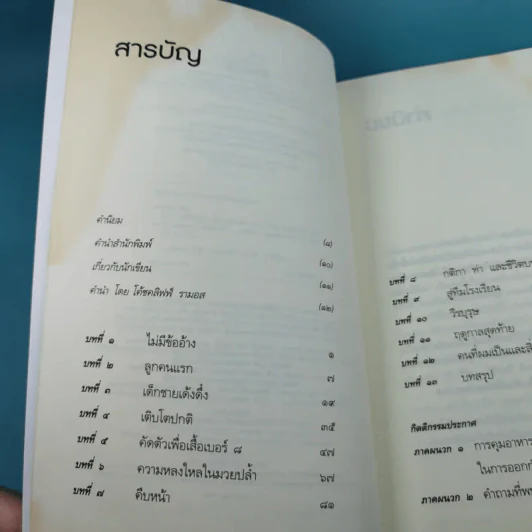 สารบัญ
คำนิยม (๘)
คำนำสำนักพิมพ์ (๑๐)
เกี่ยวกับนักเขียน (๑๑)
คำนำ โดย โค้ชคลิฟฟ์ รามอส (๑๒)
บทที่ ๑ ไม่มีข้ออ้าง ๑
บทที่ ๒ ลูกคนแรก ๗
บทที่ ๓ เด็กชายเด้งดึ๋ง ๑๙
บทที่ ๔ เติบโตปกติ ๓๕
บทที่ ๕ คัดตัวเพื่อเสื้อเบอร์ ๘ ๔๗
บทที่ ๖ ความหลงใหลในมวยปล้ำ ๖๗
บทที่ ๗ คืบหน้า ๘๑
บทที่ ๘ กติกา ท่า และชีวิตบน
บทที่ ๙ สู่ทีมโรงเรียน
บทที่ ๑๐ วีรบุรุษ
บทที่ ๑๑ ฤดูกาลสุดท้าย
บทที่ ๑๒ คนที่ผมเป็นและสิ่
บทที่ ๑๓ บทสรุป
กิตติกรรมประกาศ
ภาคผนวก ๑ การคุมอาหาร
ในการออกก
ภาคผนวก ๒ คำถามที่พ